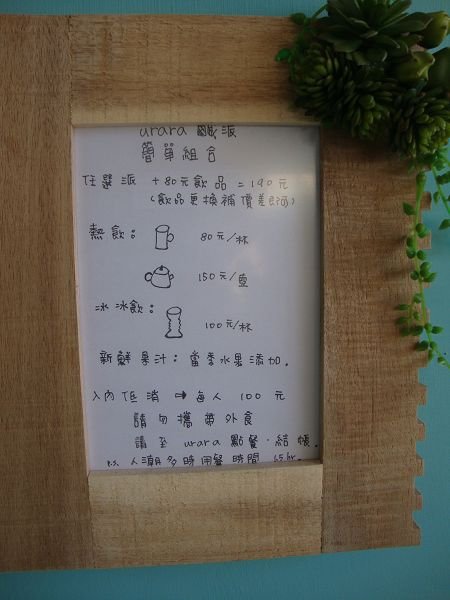 urara 鹹派
簡單組合
任選派 +80元飲品 = 190元
(飲品更換補價差即可)
熱飲: 80元/杯
150元/壺
冰冰飲:
100元/杯
新鮮果汁: 當季水果添加.
入內低消 ➡ 每人 100 元
請勿攜帶外食
請至 urara 點餐·結帳.
p.s. 人潮多時用餐時間 1.5hr.